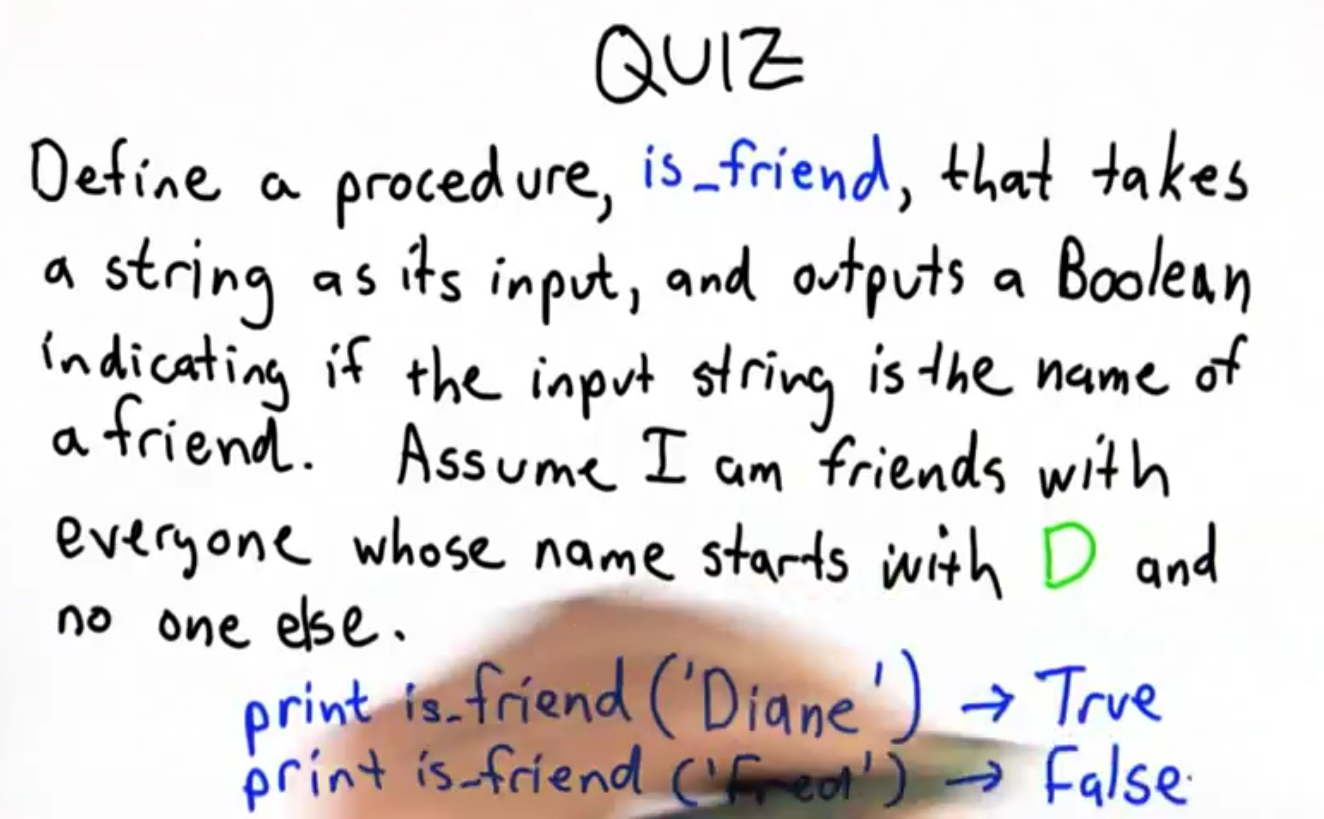 QUIZ
Define a procedure, is_friend, that takes
a string as its input, and outputs a Boolean
indicating if the input string is the name of
a friend. Assume I am friends with
everyone whose name starts with D and
no one else.
print is_friend('Diane') → True
print is_friend ('Fred') → False